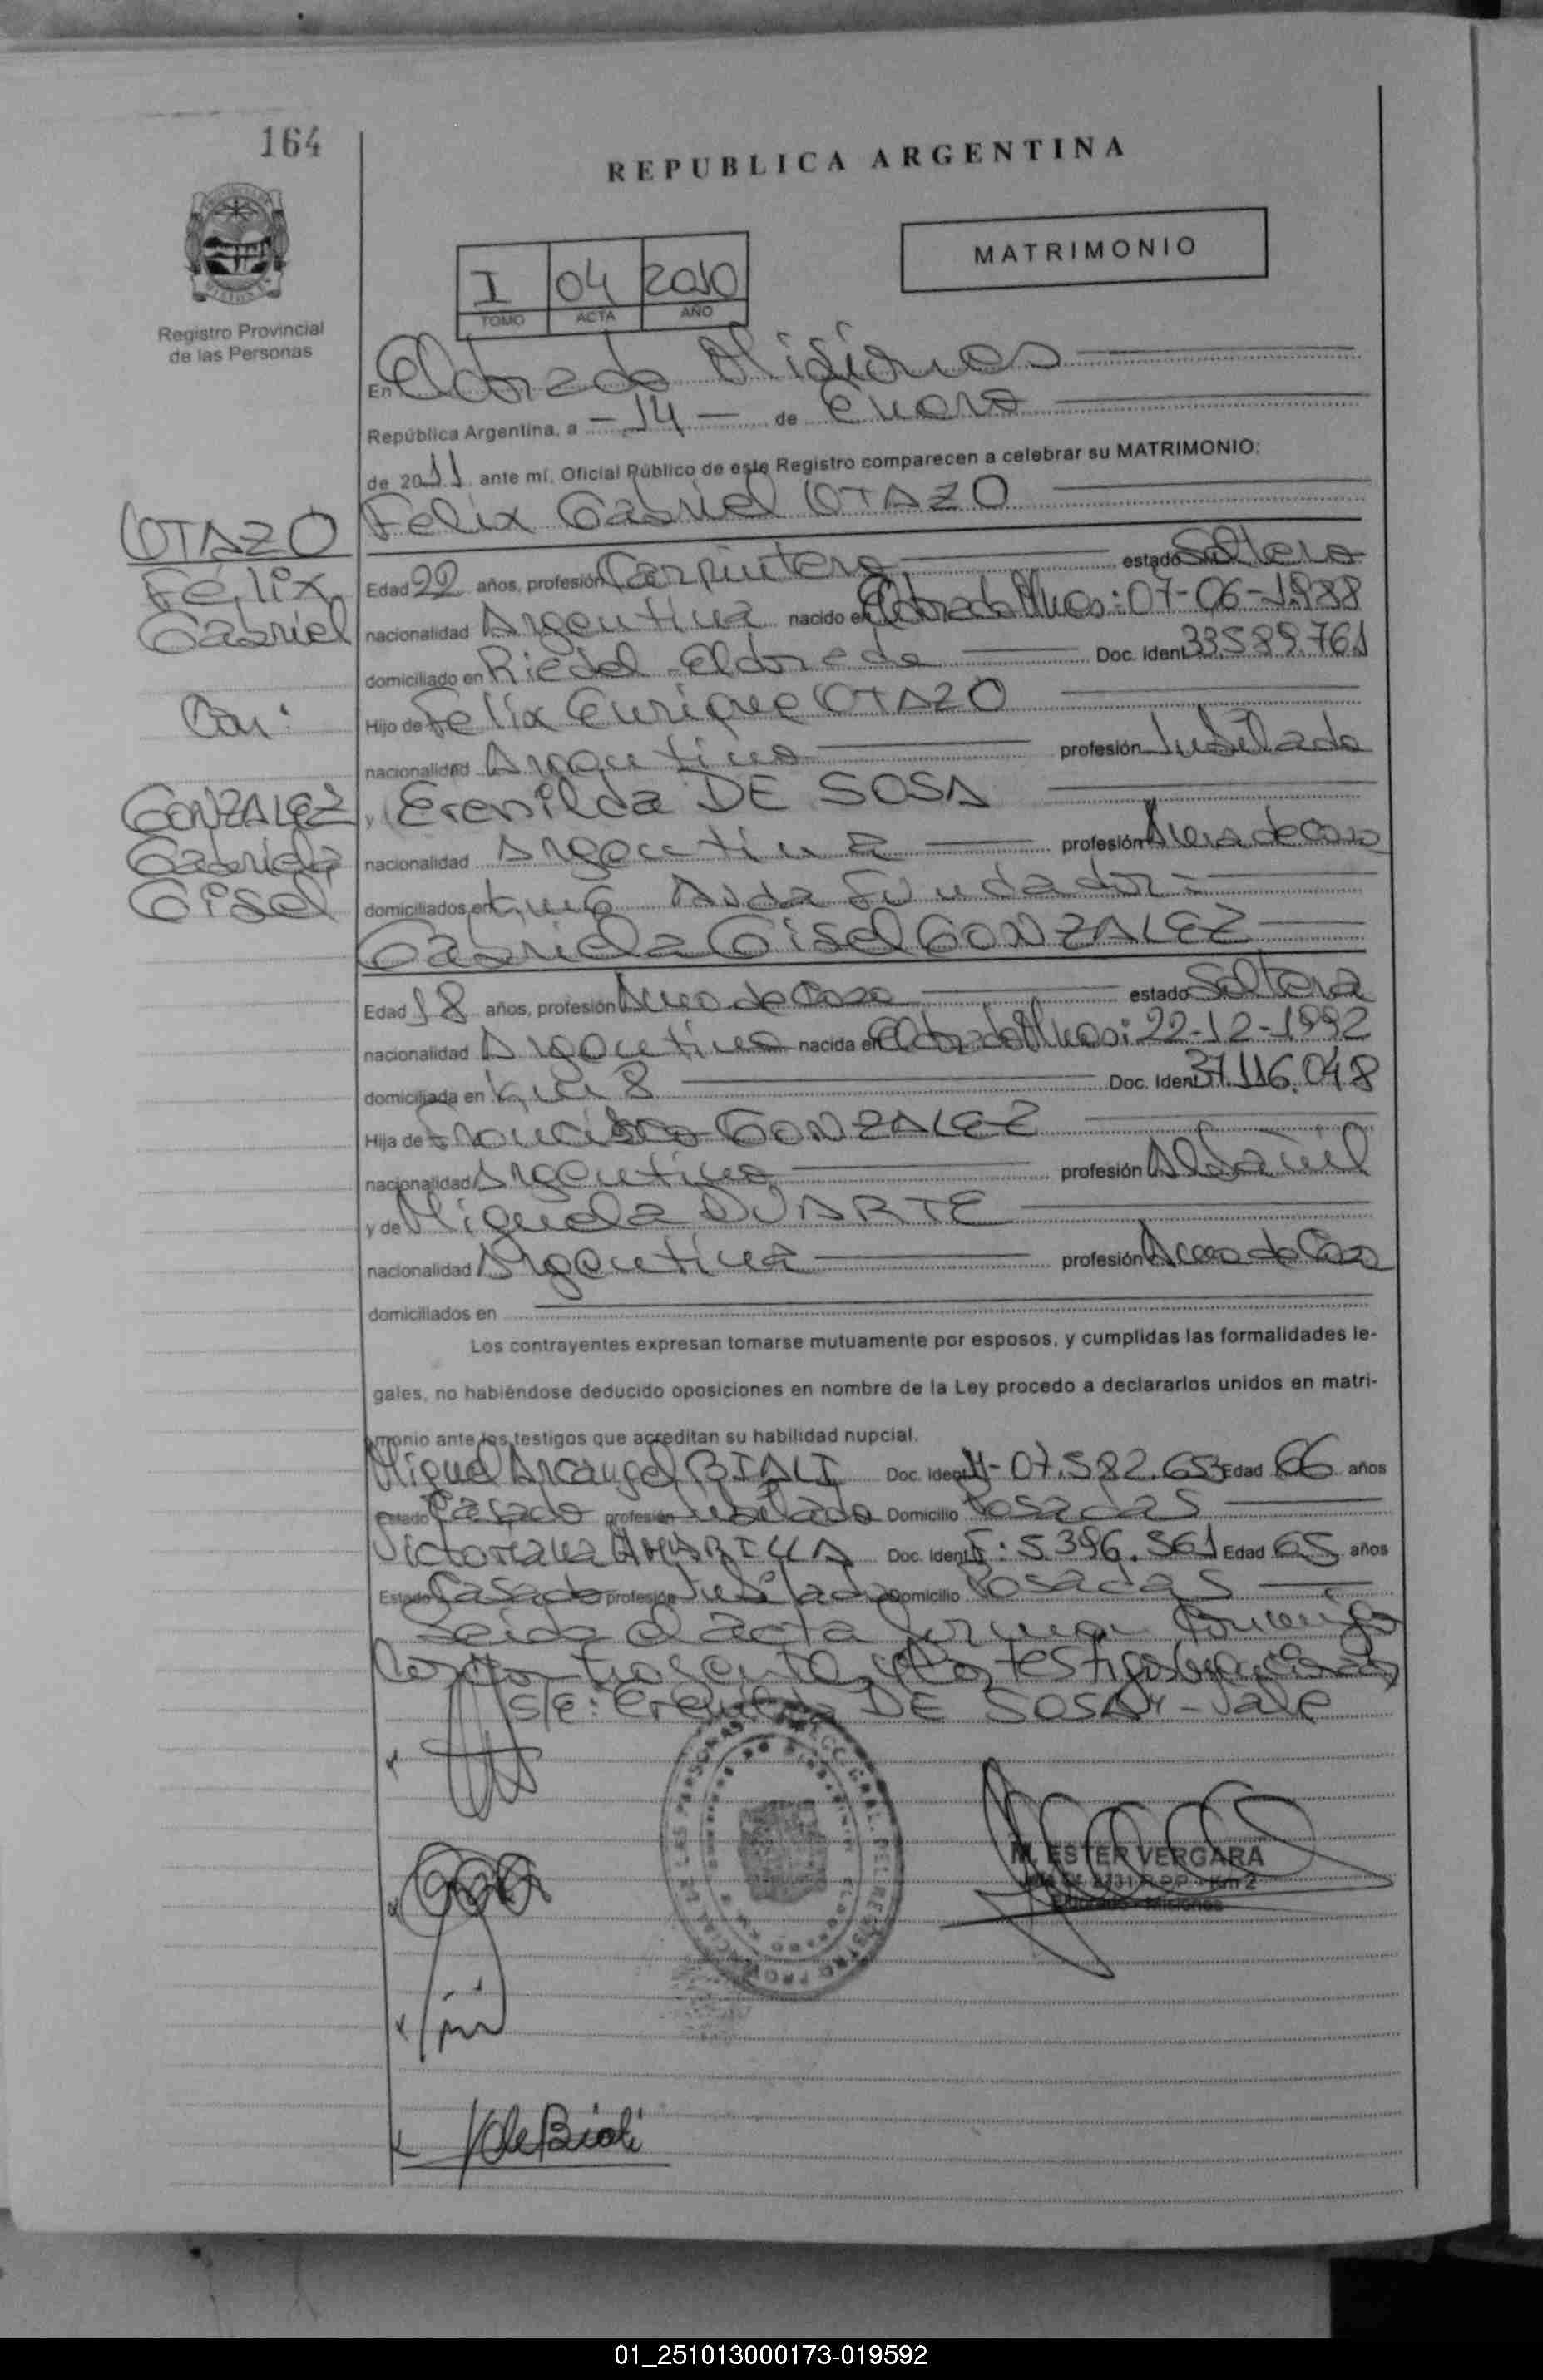 164
REPUBLICA ARGENTINA
MATRIMONIO
I 04 2010
TOMO ACTA AÑO
Registro Provincial
de las Personas
En Eldorado Misiones
República Argentina, a -14- de Enero
de 2011 ante mí, Oficial Público de este Registro comparecen a celebrar su MATRIMONIO:
Félix Gabriel OTAZO
OTAZO
Félix
Gabriel
Con:
GONZALEZ
Gabriela
Gisel
Edad 22 años, profesión Carpintero estado Soltero
nacionalidad Argentina nacido en Eldorado Mnes: 07-06-1988
domiciliado en Riedel Eldorado Doc. Ident 33.589.761
Hijo de Félix Enrique OTAZO
nacionalidad Argentino profesión Jubilado
y Erenilda DE SOSA
nacionalidad Argentina profesión Ama de Casa
domiciliados en Km 6 Avda Fundador
Gabriela Gisel GONZALEZ
Edad 18 años, profesión Ama de Casa estado Soltera
nacionalidad Argentina nacida en Eldorado Mnes: 22-12-1992
domiciliada en Km 8 Doc. Ident 37.116.048
Hija de Francisco GONZALEZ
nacionalidad Argentino profesión Albañil
y de Miguela DUARTE
nacionalidad Argentina profesión Ama de Casa
domiciliados en
Los contrayentes expresan tomarse mutuamente por esposos, y cumplidas las formalidades le-
gales, no habiéndose deducido oposiciones en nombre de la Ley procedo a declararlos unidos en matri-
monio ante los testigos que acreditan su habilidad nupcial.
Miguel Arcangel BIALI Doc. Ident M-07.582.653 Edad 66 años
Estado Casado profesión Jubilado Domicilio Posadas
Victoriana AMARILLA Doc. Ident F: 5.396.561 Edad 65 años
Estado Casada profesión Jubilada Domicilio Posadas
Leida el acta firman conmigo
los contrayentes y los testigos mencionados
s/e: Erenilda DE SOSA" - Vale
M. ESTER VERGARA
Km 2
Eldorado - Misiones
V de Biali
01_251013000173-019592